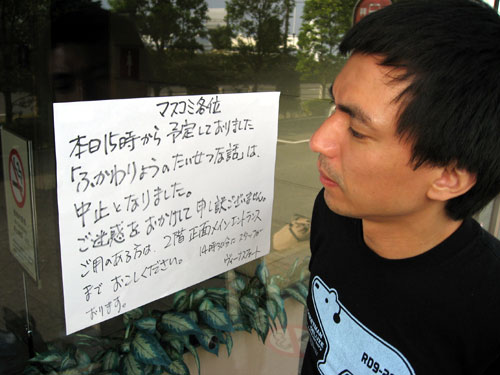 マスコミ各位
本日15時から予定しておりました
「ふかわりょうのたいせつな話」は、
中止となりました。
ご迷惑をおかけして申し訳ございません。
ご用のある方は、2階正面メインエントランス
までおこしください。
14時30分にスタッフが
おります。
ヴィーナスフォート
RD9-2